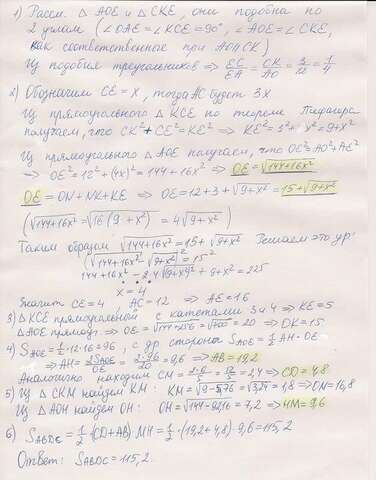 1) Рассм. △ AOE и △ CKE, они подобны по
2 углам (∠OAE = ∠KCE = 90°, ∠AOE = ∠CKE,
как соответственные при AO∥CK)
Из подобия треугольников ⇒ EC/EA = CK/AO = 3/12 = 1/4
2) Обозначим CE = x, тогда AC будет 3x
Из прямоугольного △ KCE по теореме Пифагора
получаем, что CK² + CE² = KE² ⇒ KE² = 3² + x² = 9 + x²
Из прямоугольного △ AOE получаем, что OE² = AO² + AE²
⇒ OE² = 12² + (4x)² = 144 + 16x² ⇒ OE = √144+16x²
OE = ON + NK + KE ⇒ OE = 12 + 3 + √9+x² = 15 + √9+x²
(√144+16x² = √16(9+x²) = 4√9+x²)
Таким образом √144+16x² = 15 + √9+x² Решаем это ур-
(√144+16x² - √9+x²)² = 15²
144+16x² - 2·4√(9+x²)² + 9+x² = 225
x = 4
Значит CE = 4 AC = 12 ⇒ AE = 16
3) △ KCE прямоугольной с катетами 3 и 4 ⇒ KE = 5
△ AOE прямоуг. ⇒ OE = √144+256 = √400 = 20 ⇒ OK = 15
4) S AOE = 1/2 · 12 · 16 = 96, с др стороны S AOE = 1/2 AH · OE
⇒ AH = 2S AOE / OE = 2·96/20 = 9,6 ⇒ AB = 19,2
Аналогично находим CM = 2·6/5 = 12/5 = 2,4 ⇒ CD = 4,8
5) Из △ CKM найдем KM: KM = √9-5,76 = √3,24 = 1,8 ⇒ OM = 16,8
Из △ AOH найдем OH: OH = √144-92,16 = 7,2 ⇒ HM = 9,6
6) S ABDC = 1/2 (CD+AB) MH = 1/2 · (19,2+4,8) · 9,6 = 115,2
Ответ: S ABDC = 115,2.